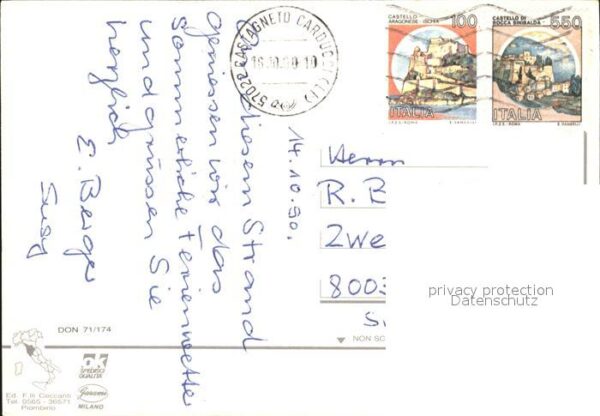 CASTELLO
ARAGONESE - ISCHIA
100
ITALIA
I.P.Z.S. - ROMA
CASTELLO DI
ROCCA SINIBALDA
550
ITALIA
I.P.Z.S. - ROMA
57022 CASTAGNETO CARDUCCI (LI)
diesem Strand
geniessen wir das
sommerliche Ferienwetter
und grüssen Sie
herzlich,
E. Berger
Susy
14.10.90.
Herrn
R. B
Zwe
8003
privacy protection
Datenschutz
DON 71/174
NON SC
Ed. F.lli Ceccanti
Tel. 0565 - 36571
Piombino
ok
QUALITA'
Garami
MILANO